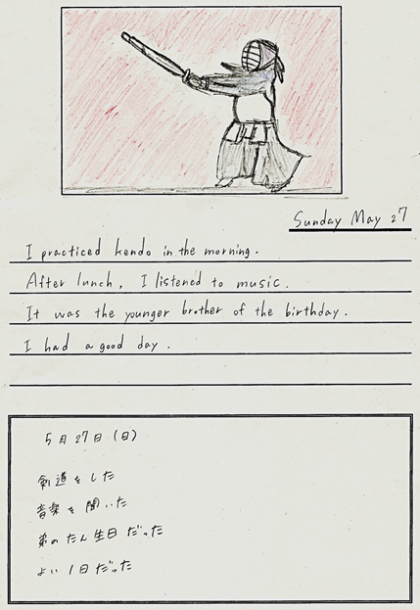 Sunday May 27
I practiced kendo in the morning.
After lunch, I listened to music.
It was the younger brother of the birthday.
I had a good day.
5月27日(日)
剣道をした
音楽を聞いた
弟のたん生日だった
よい1日だった